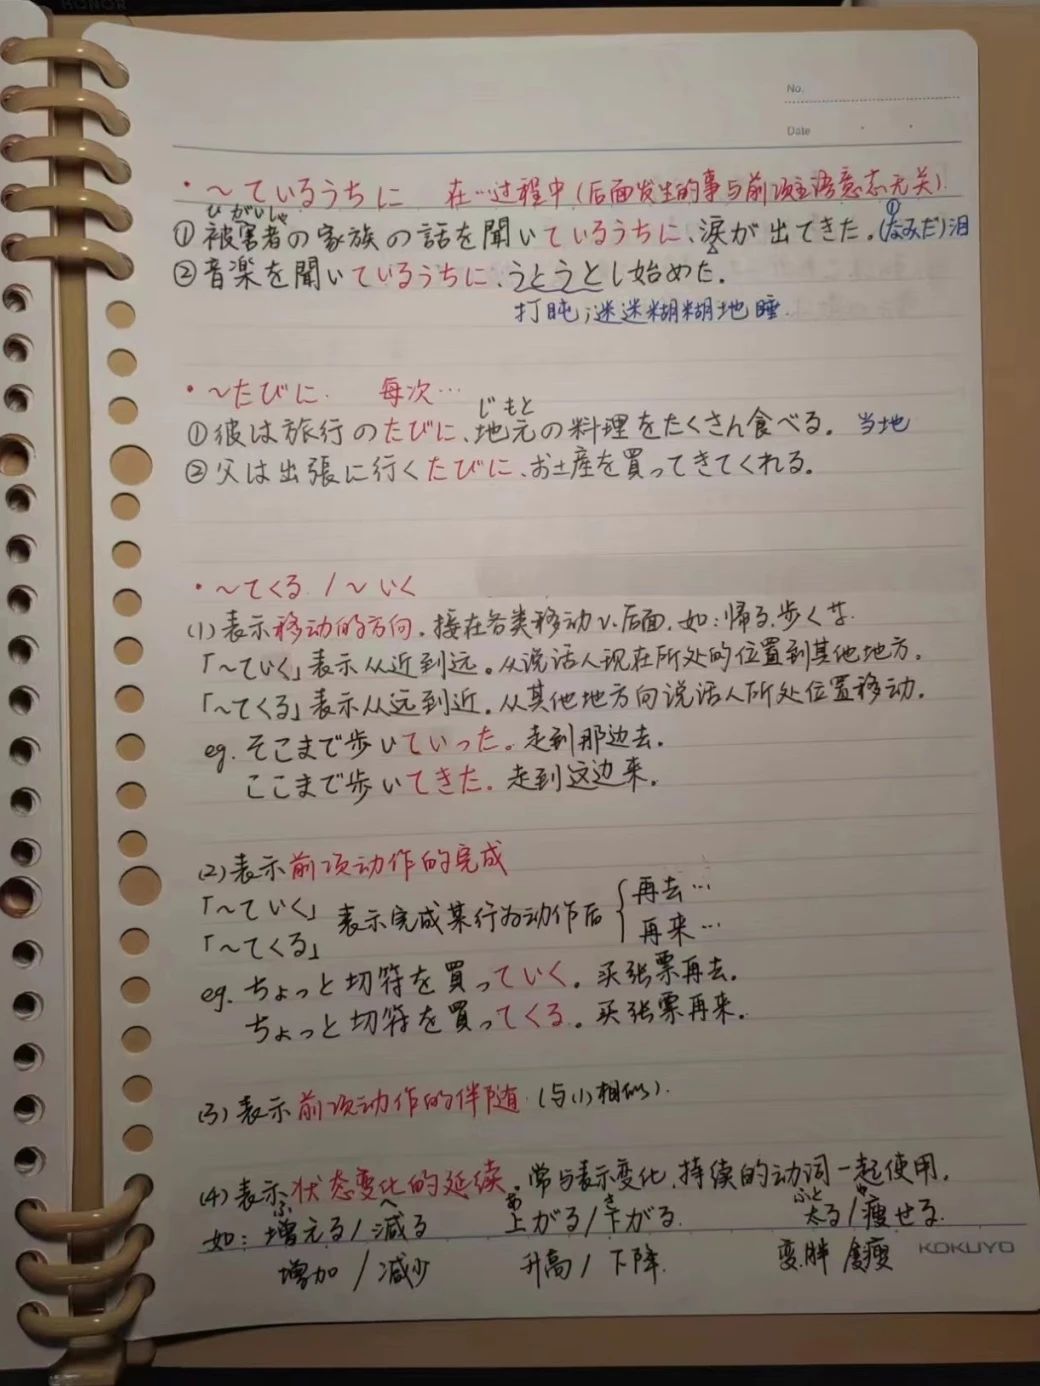 HONOR
No.
Date
・～ているうちに 在…过程中(后面发生的事与前项主语意志无关).
ひがいしゃ
①被害者の家族の話を聞いているうちに、涙が出てきた。(①なみだ)泪
②音楽を聞いているうちに、うとうとし始めた。
打盹;迷迷糊糊地睡.
・～たびに. 每次…
じもと
①彼は旅行のたびに、地元の料理をたくさん食べる。 当地
②父は出張に行くたびに、お土産を買ってきてくれる。
・～てくる / ～いく
(1)表示移动的方向。接在各类移动v.后面,如:帰る、歩く等.
「～ていく」表示从近到远。从说话人现在所处的位置到其他地方。
「～てくる」表示从远到近。从其他地方向说话人所处位置移动。
eg. そこまで歩いていった。走到那边去。
ここまで歩いてきた。走到这边来。
(2)表示前项动作的完成
「～ていく」
「～てくる」
表示完成某行为动作后
再去…
再来…
eg. ちょっと切符を買っていく。买张票再去。
ちょっと切符を買ってくる。买张票再来。
(3)表示前项动作的伴随(与(1)相似).
(4)表示状态变化的延续。常与表示变化、持续的动词一起使用。
ふ へ あ さ ふと や
如:増える/減る 上がる/下がる. 太る/痩せる.
增加/减少 升高/下降. 变胖 变瘦
KOKUYO